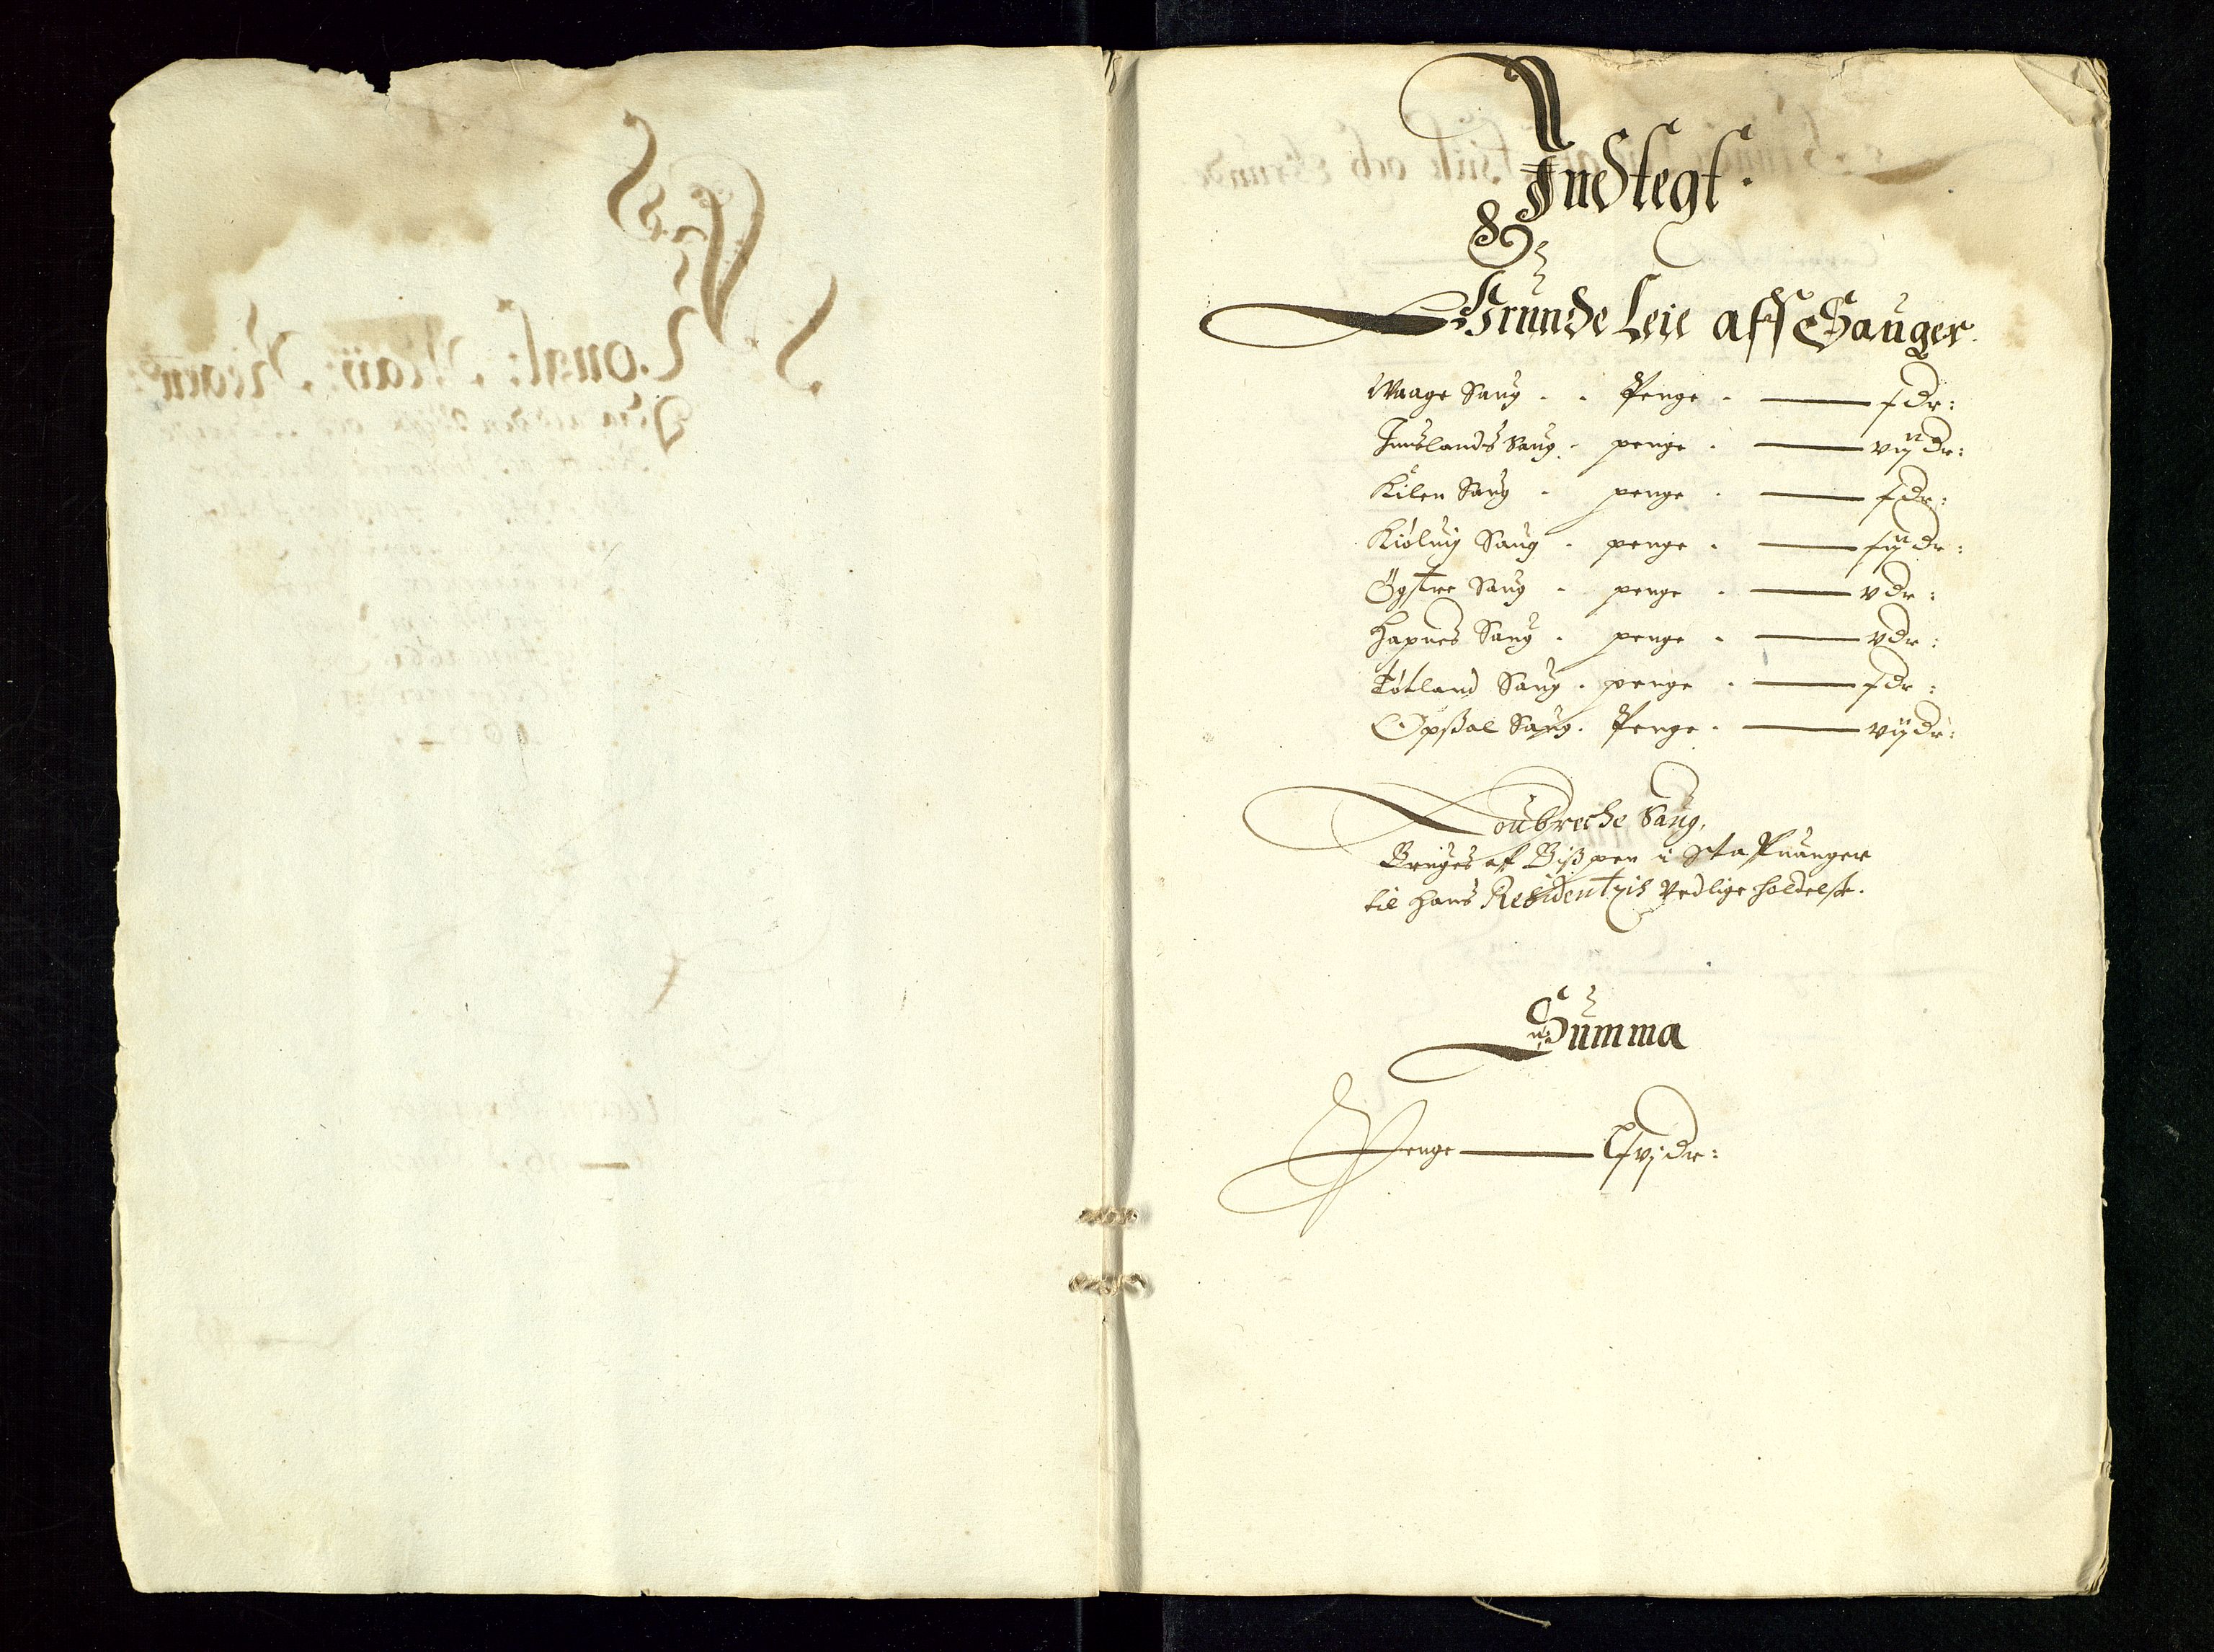 Indtegt.
Grunde Leie aff Sauger.
Waage Saug . . Penge . — x dr:
Imslands Saug . penge . — vij dr:
Kilen Saug . penge . — x dr:
Kiøluig Saug . penge . — xij dr:
Øgstre Saug . penge . — v dr:
Hapnes Saug . penge . — v dr:
Tøtland Saug . penge . — x dr:
Opßal Saug . Penge . — vij dr:
Loubreche Saug,
Bruges af Bißpen i Staffuanger
til hans Residentzis Vedlige holdelße.
Summa
Penge — Lxvj dr: